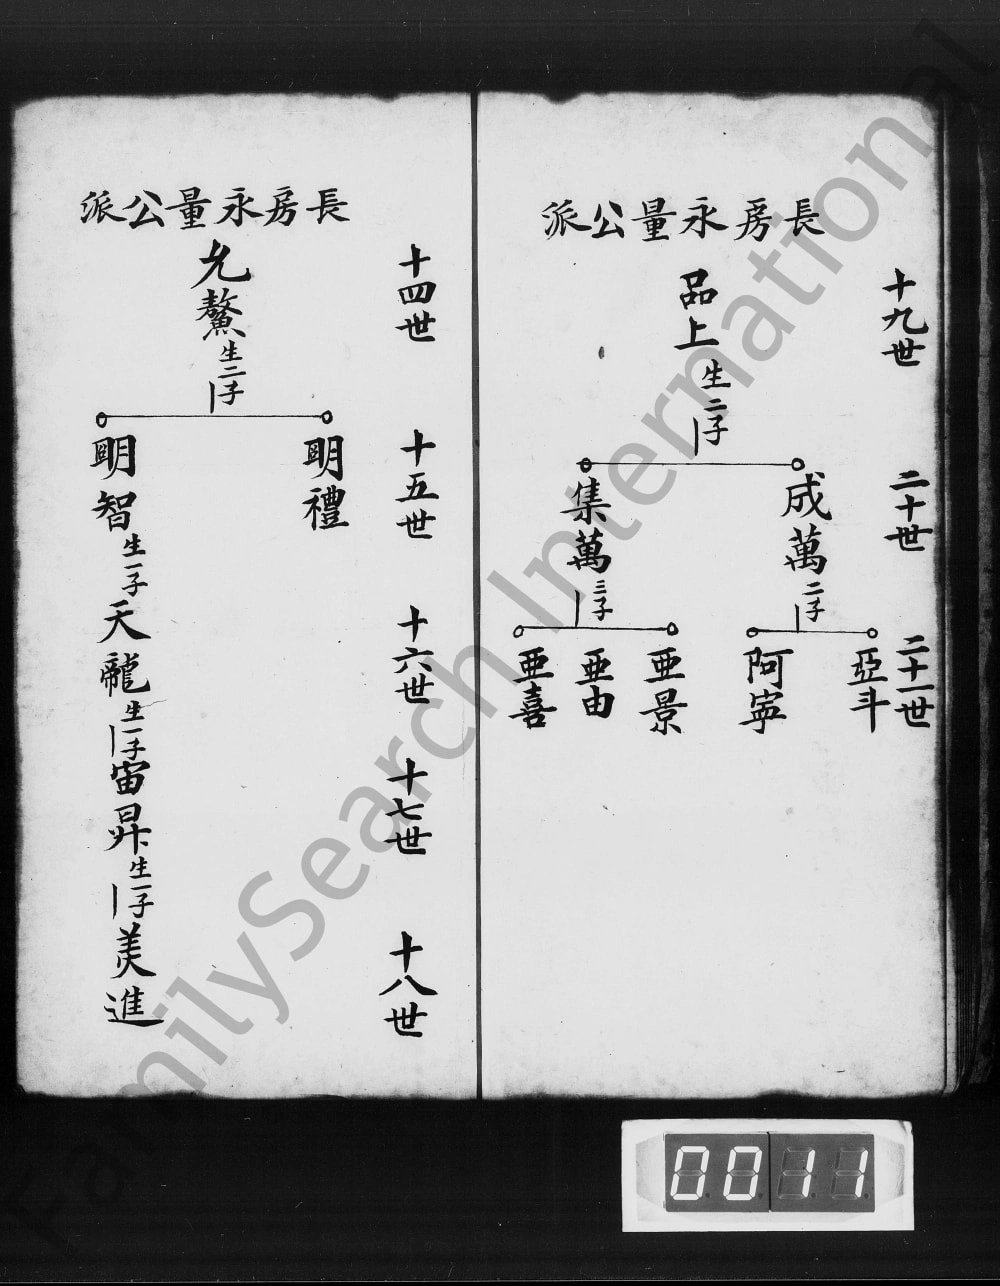 長房永量公派
十九世
品上生二子
二十世
成萬二子
集萬三子
二十一世
亞斗
阿寧
亜景
亜由
亜喜
長房永量公派
十四世
允鰲生二子
十五世
明禮
明智生一子
十六世
天龍生一子
十七世
宙昇生一子
十八世
美進
0011
FamilySearch International